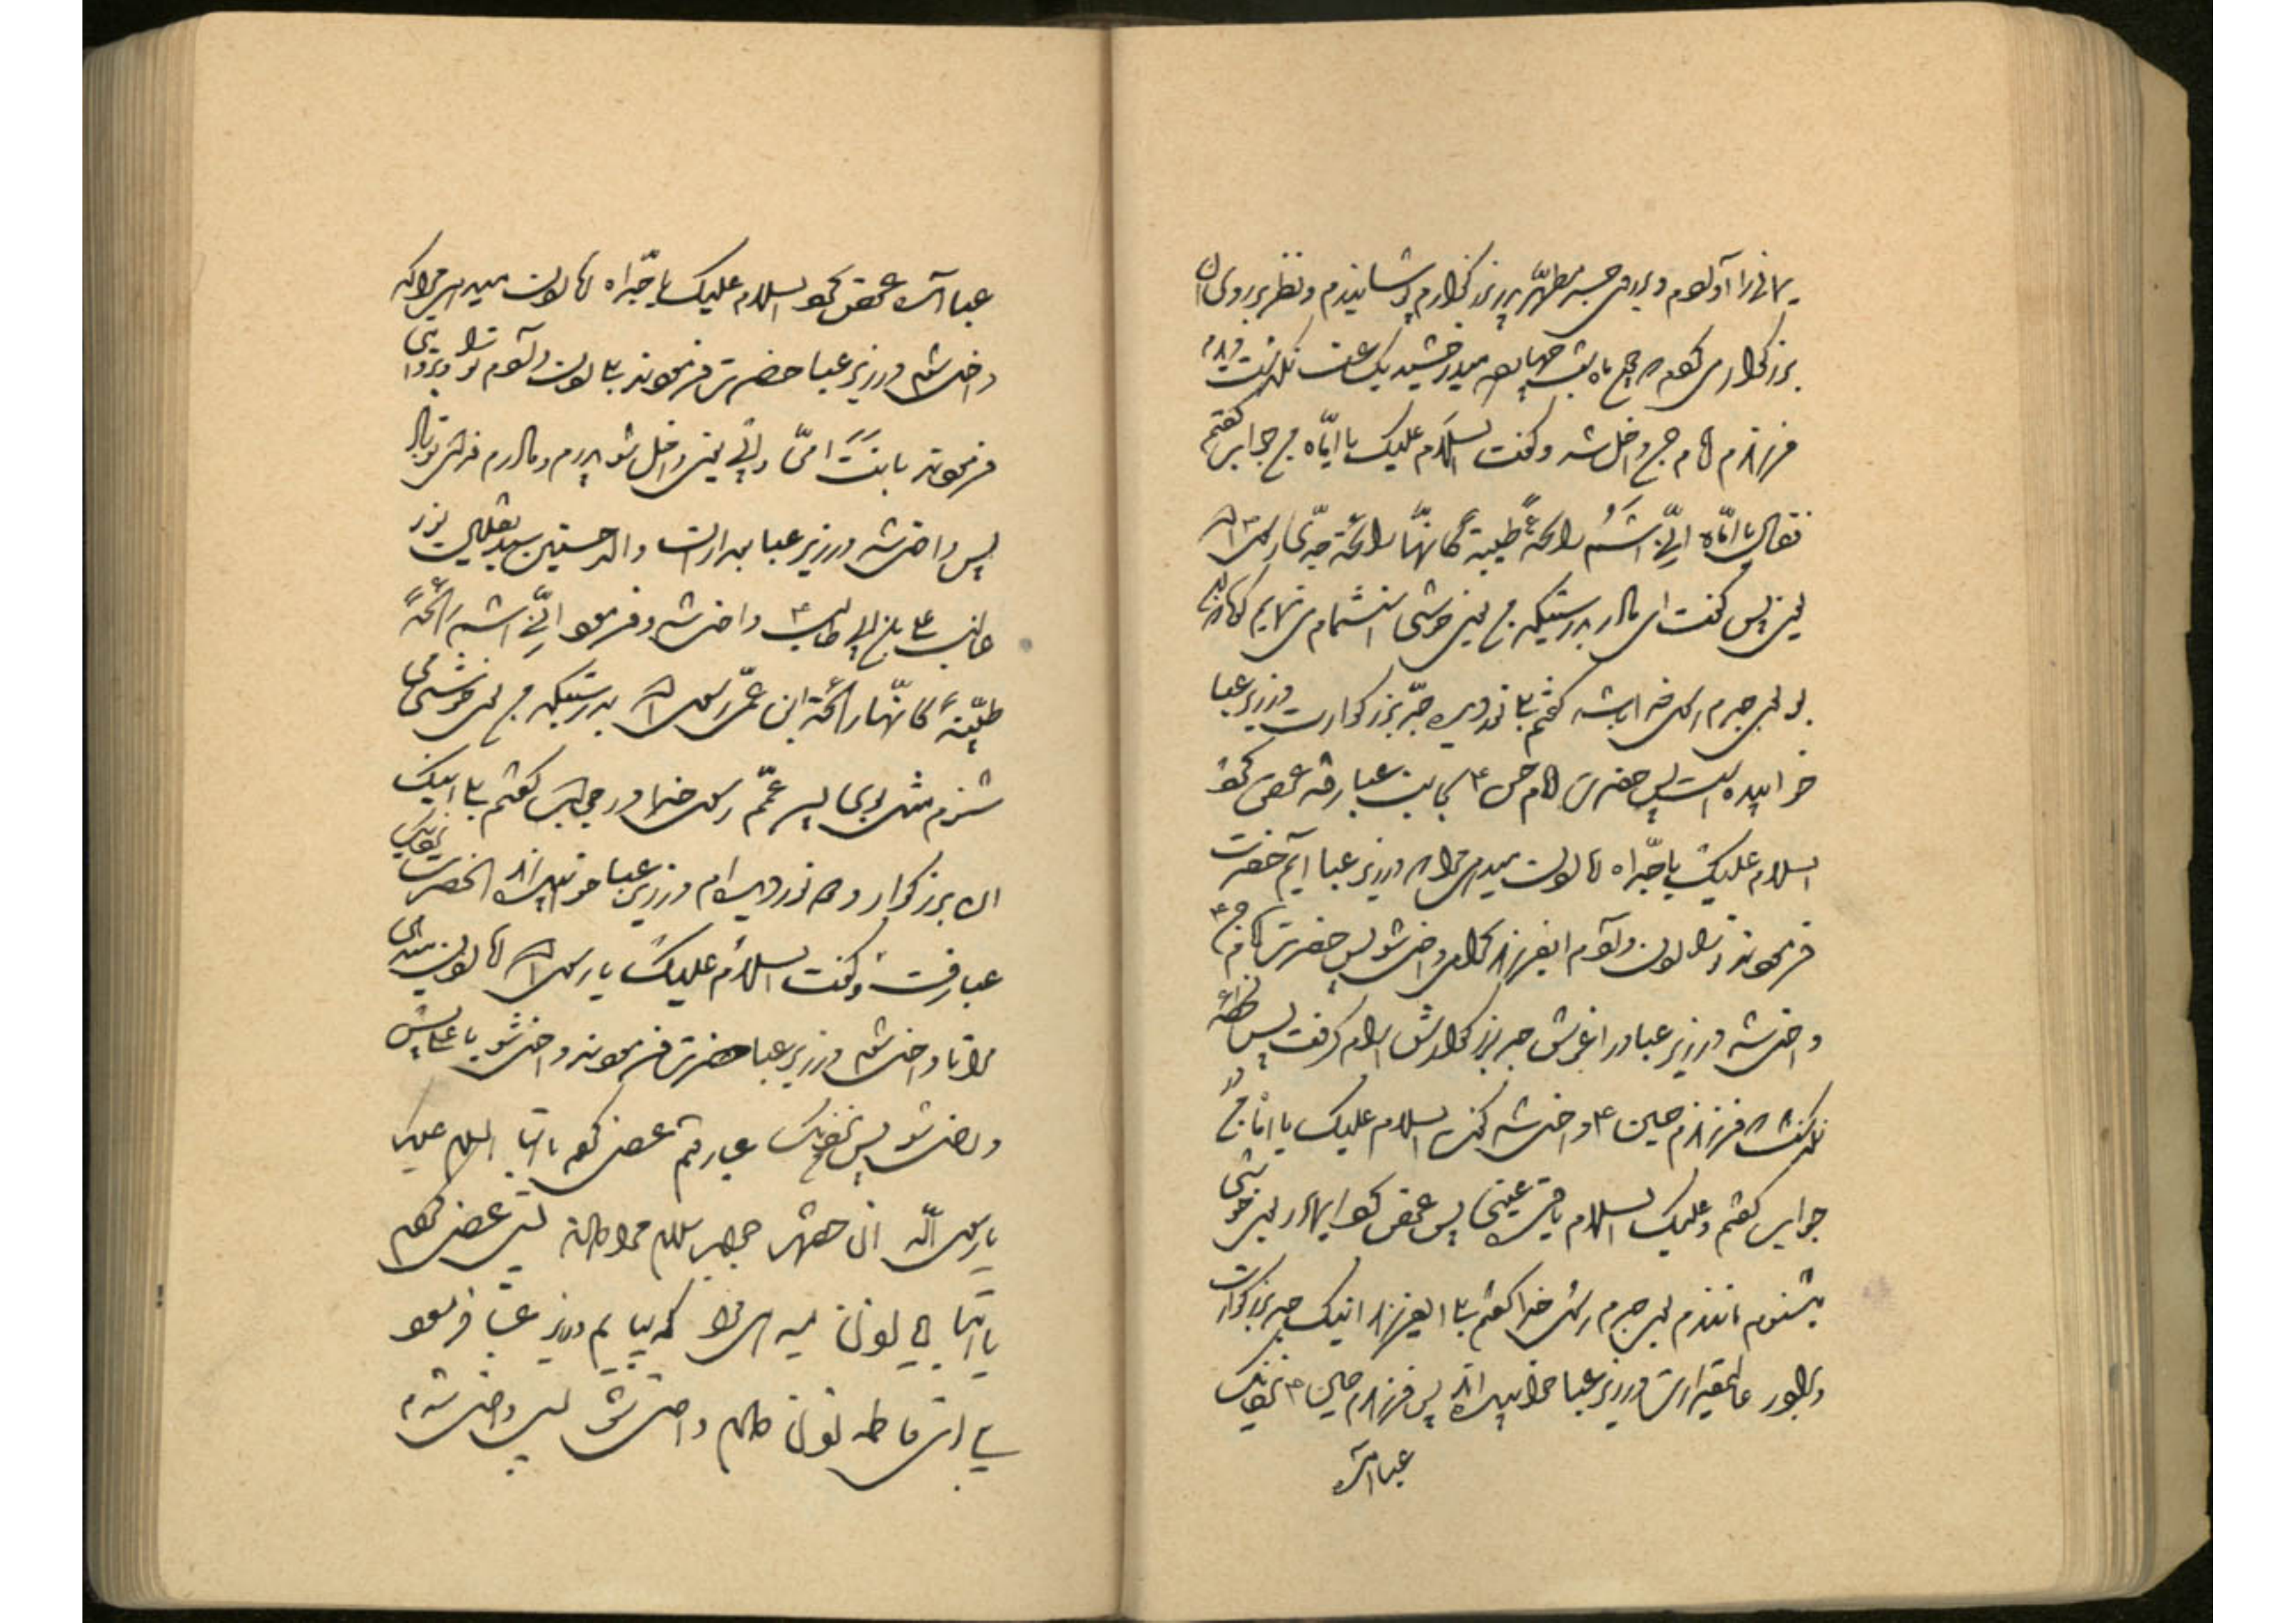 یمانی را آوردم و بر روی جسد مطهر پدر بزرگوارم پوشانیدم و نظر بر روی آن
بزرگواری کردم که چون ماه شب چهارده میدرخشید یک ساعت نگذشت که
فرزندم امام حسن داخل شد و گفت السلام علیک یا امّاه من جواب گفتم
فقال یا امّاه انّی اشمّ رائحةً طیبة کأنّها رائحة جدّی رسول الله
یعنی پس گفت ای مادر بدرستیکه من بوی خوشی استشمام می نمایم که گویا
بوی جدم رسول خدا باشد گفتم بلی نور دیده جدّ بزرگوارت در زیر عبا
خوابیده است پس حضرت امام حسن ع بجانب عبا رفته عرض کرد
السلام علیک یا جدّاه آیا اذن میدهی مرا که در زیر عبا آیم حضرت
فرمودند ترا اذن دادم ایفرزند گرامی داخل شو پس حضرت امام حسن ع
داخل شد در زیر عبا در آغوش جد بزرگوارش آرام گرفت پس لحظهٔ
نگذشت که فرزندم حسین ع داخل شد گفت السلام علیک یا امّاه من
جوابش گفتم و علیک السلام یا قرة عینی پس عرض کرد ایمادر بوی خوشی
میشنوم مانند بوی جدم رسول خدا گفتم بلی ایفرزند اینک جد بزرگوارت
و برادر عالیمقدارت در زیر عبا خوابیده اند پس فرزندم حسین ع نزدیک
عبا آمده
عبا آمده عرض کرد السلام علیک یا جدّاه آیا اذن میدهی مرا که
داخل شوم در زیر عبا حضرت فرمودند بلی اذن دادم ترا
فرمودند یا بنت امّی و ابی یعنی داخل شو پدرم و مادرم فدای تو باد
پس داخل شد در زیر عبا بعد از آن والد حسنین
غالب علی بن ابی طالب ع داخل شد و فرمود انّی اشمّ رائحةً
طیّبةً کأنّها رائحة ابن عمّی رسول الله بدرستیکه من بوی خوشی
میشنوم مثل بوی پسر عمّم رسول خدا در جوابش گفتم بلی اینک
آن بزرگوار و دو نور دیده ام در زیر عبا خوابیده اند آنحضرت نزدیک
عبا رفت و گفت السلام علیک یا رسول الله آیا اذن میدهی
مرا تا داخل شوم در زیر عبا حضرت فرمودند داخل شو یا علی پس
داخل شد پس نزدیک عبا رفتم عرض کردم یا ابتا السلام علیک
یا رسول الله آن حضرت جواب سلام مرا داد پس عرض کردم
یا ابتا آیا اذن میدهی مرا که بیایم در زیر عبا فرمود
بلی ای فاطمه اذن دادم داخل شو پس داخل شدم